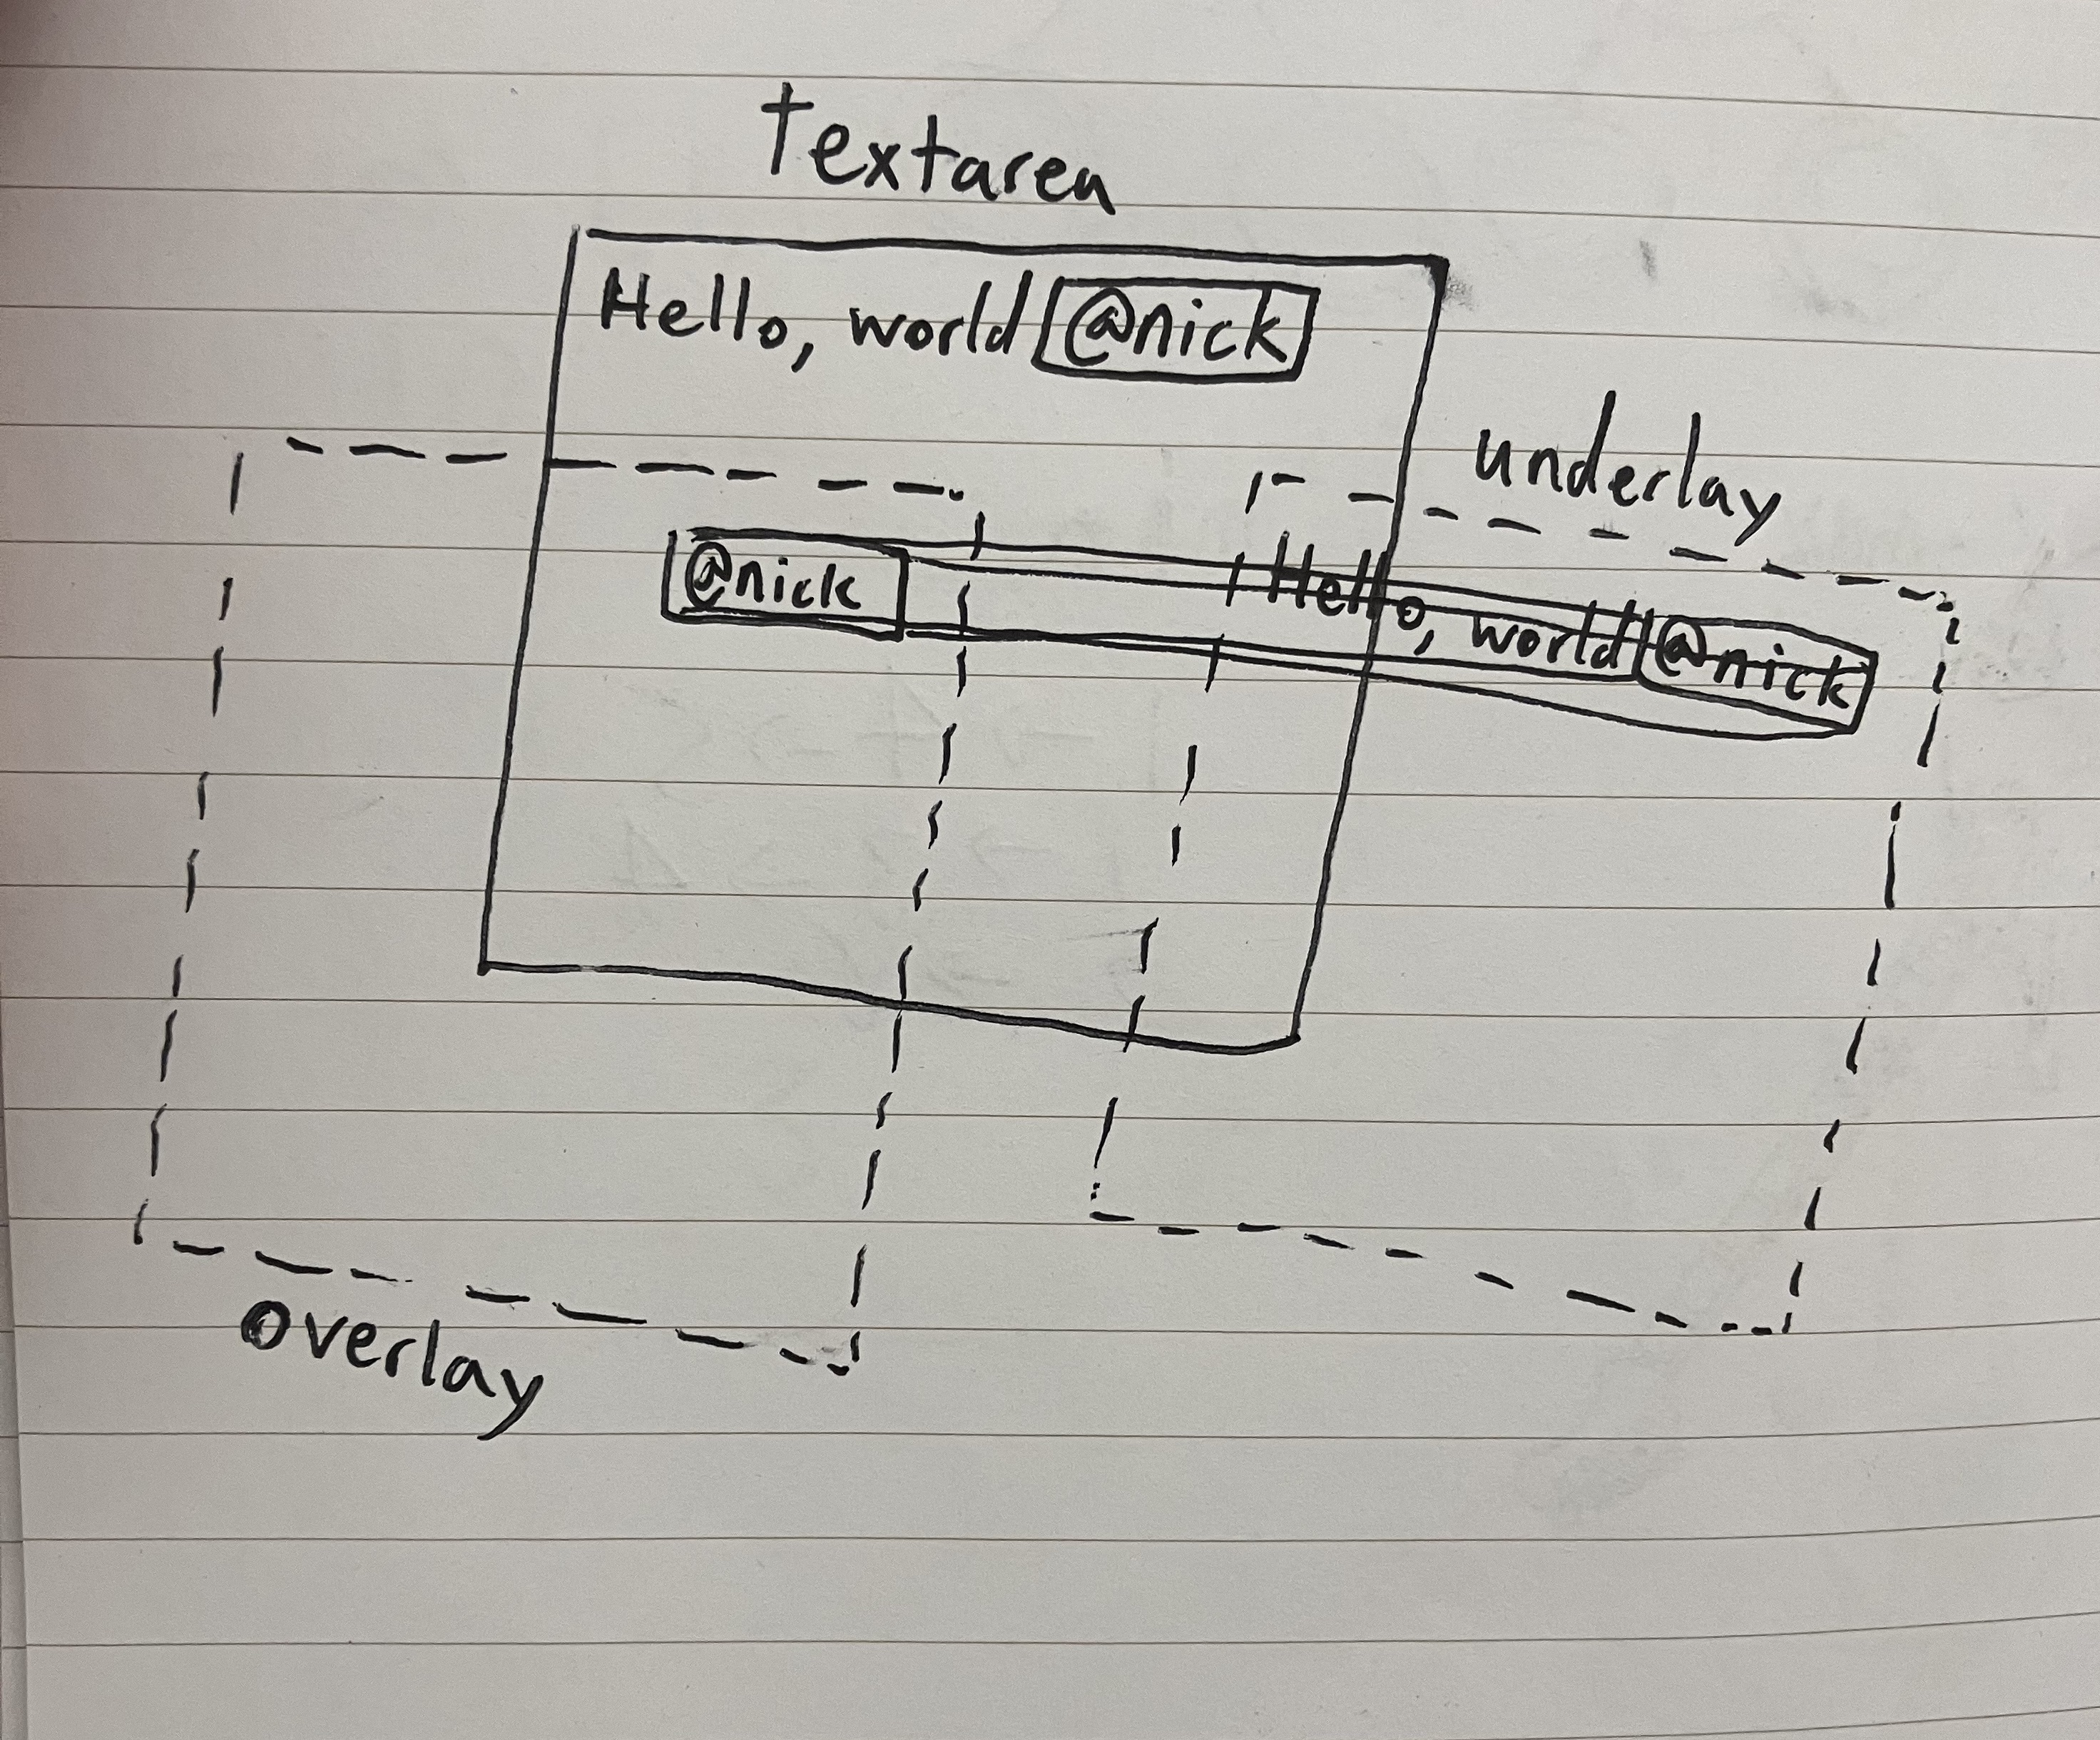 Textarea
Hello, world @nick
underlay
@nick
Hello, world @nick
overlay